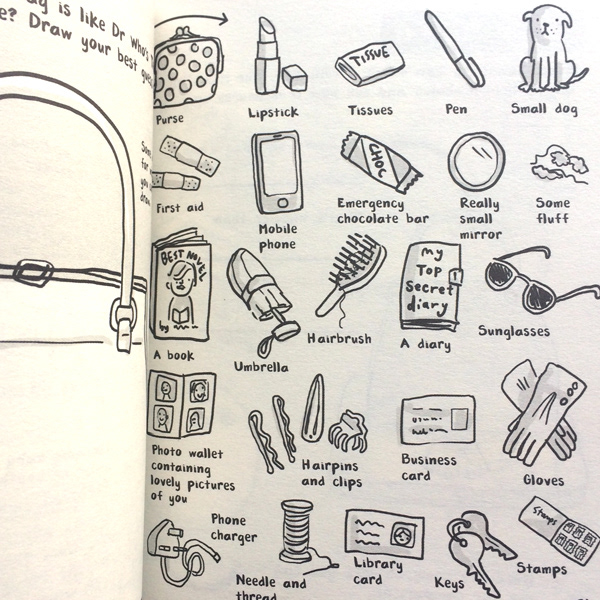 ag is like Dr Who's
e? Draw your best guess
Purse
Lipstick
TISSUE
Tissues
Pen
Small dog
First aid
Mobile
phone
CHOC
Emergency
chocolate bar
Really
small
mirror
Some
fluff
BEST NOVEL
by
A book
Umbrella
Hairbrush
my
Top
Secret
diary
A diary
Sunglasses
Photo wallet
containing
lovely pictures
of you
Hairpins
and clips
Business
card
Gloves
Phone
charger
Needle and
thread
Library
card
Keys
Stamps
Stamps